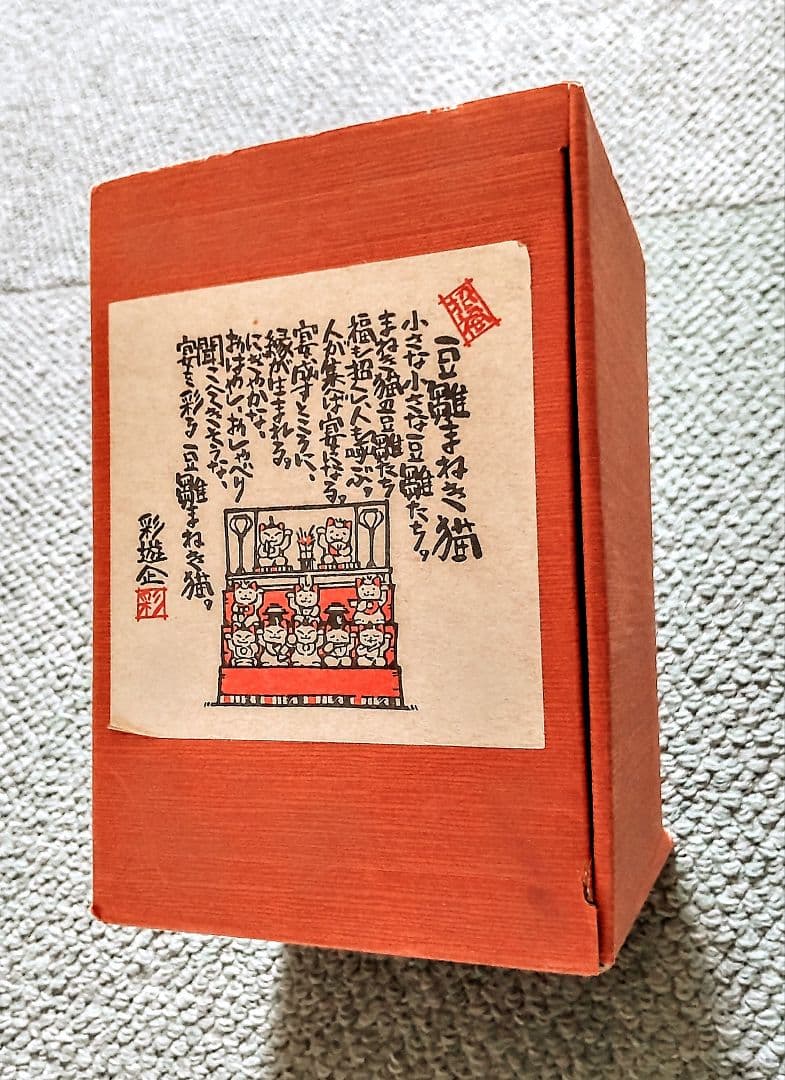 豆雛まねき猫
小さな小さな豆雛たち。
まねき猫豆雛たち
福も招くし人も呼ぶ。
人が集えば宴になる。
宴。催すところに、
縁が生まれる。
にぎやかな、
おはやし、おしゃべり
聞こえてきそうな、
宴を彩る豆雛まねき猫。
彩遊企
彩